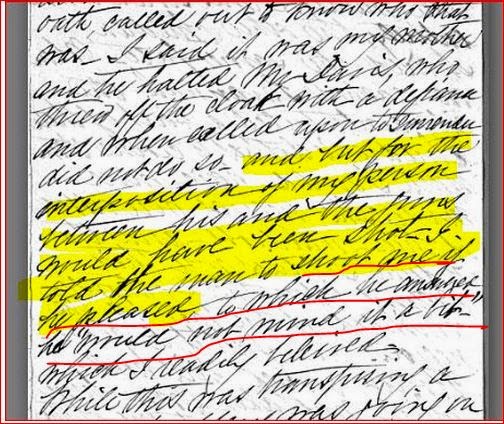 oath called out to know who that
was - I said it was my mother
and he halted Mr Davis, who
threw off the cloak with a defiance
and when called upon to surrender
did not do so. and but for the
interposition of my person
between his and the guns
would have been shot - I
told the man to shoot me if
he pleased, to which he answered
he "would not mind it a bit"
which I readily believed -
While this was transpiring a
was going on